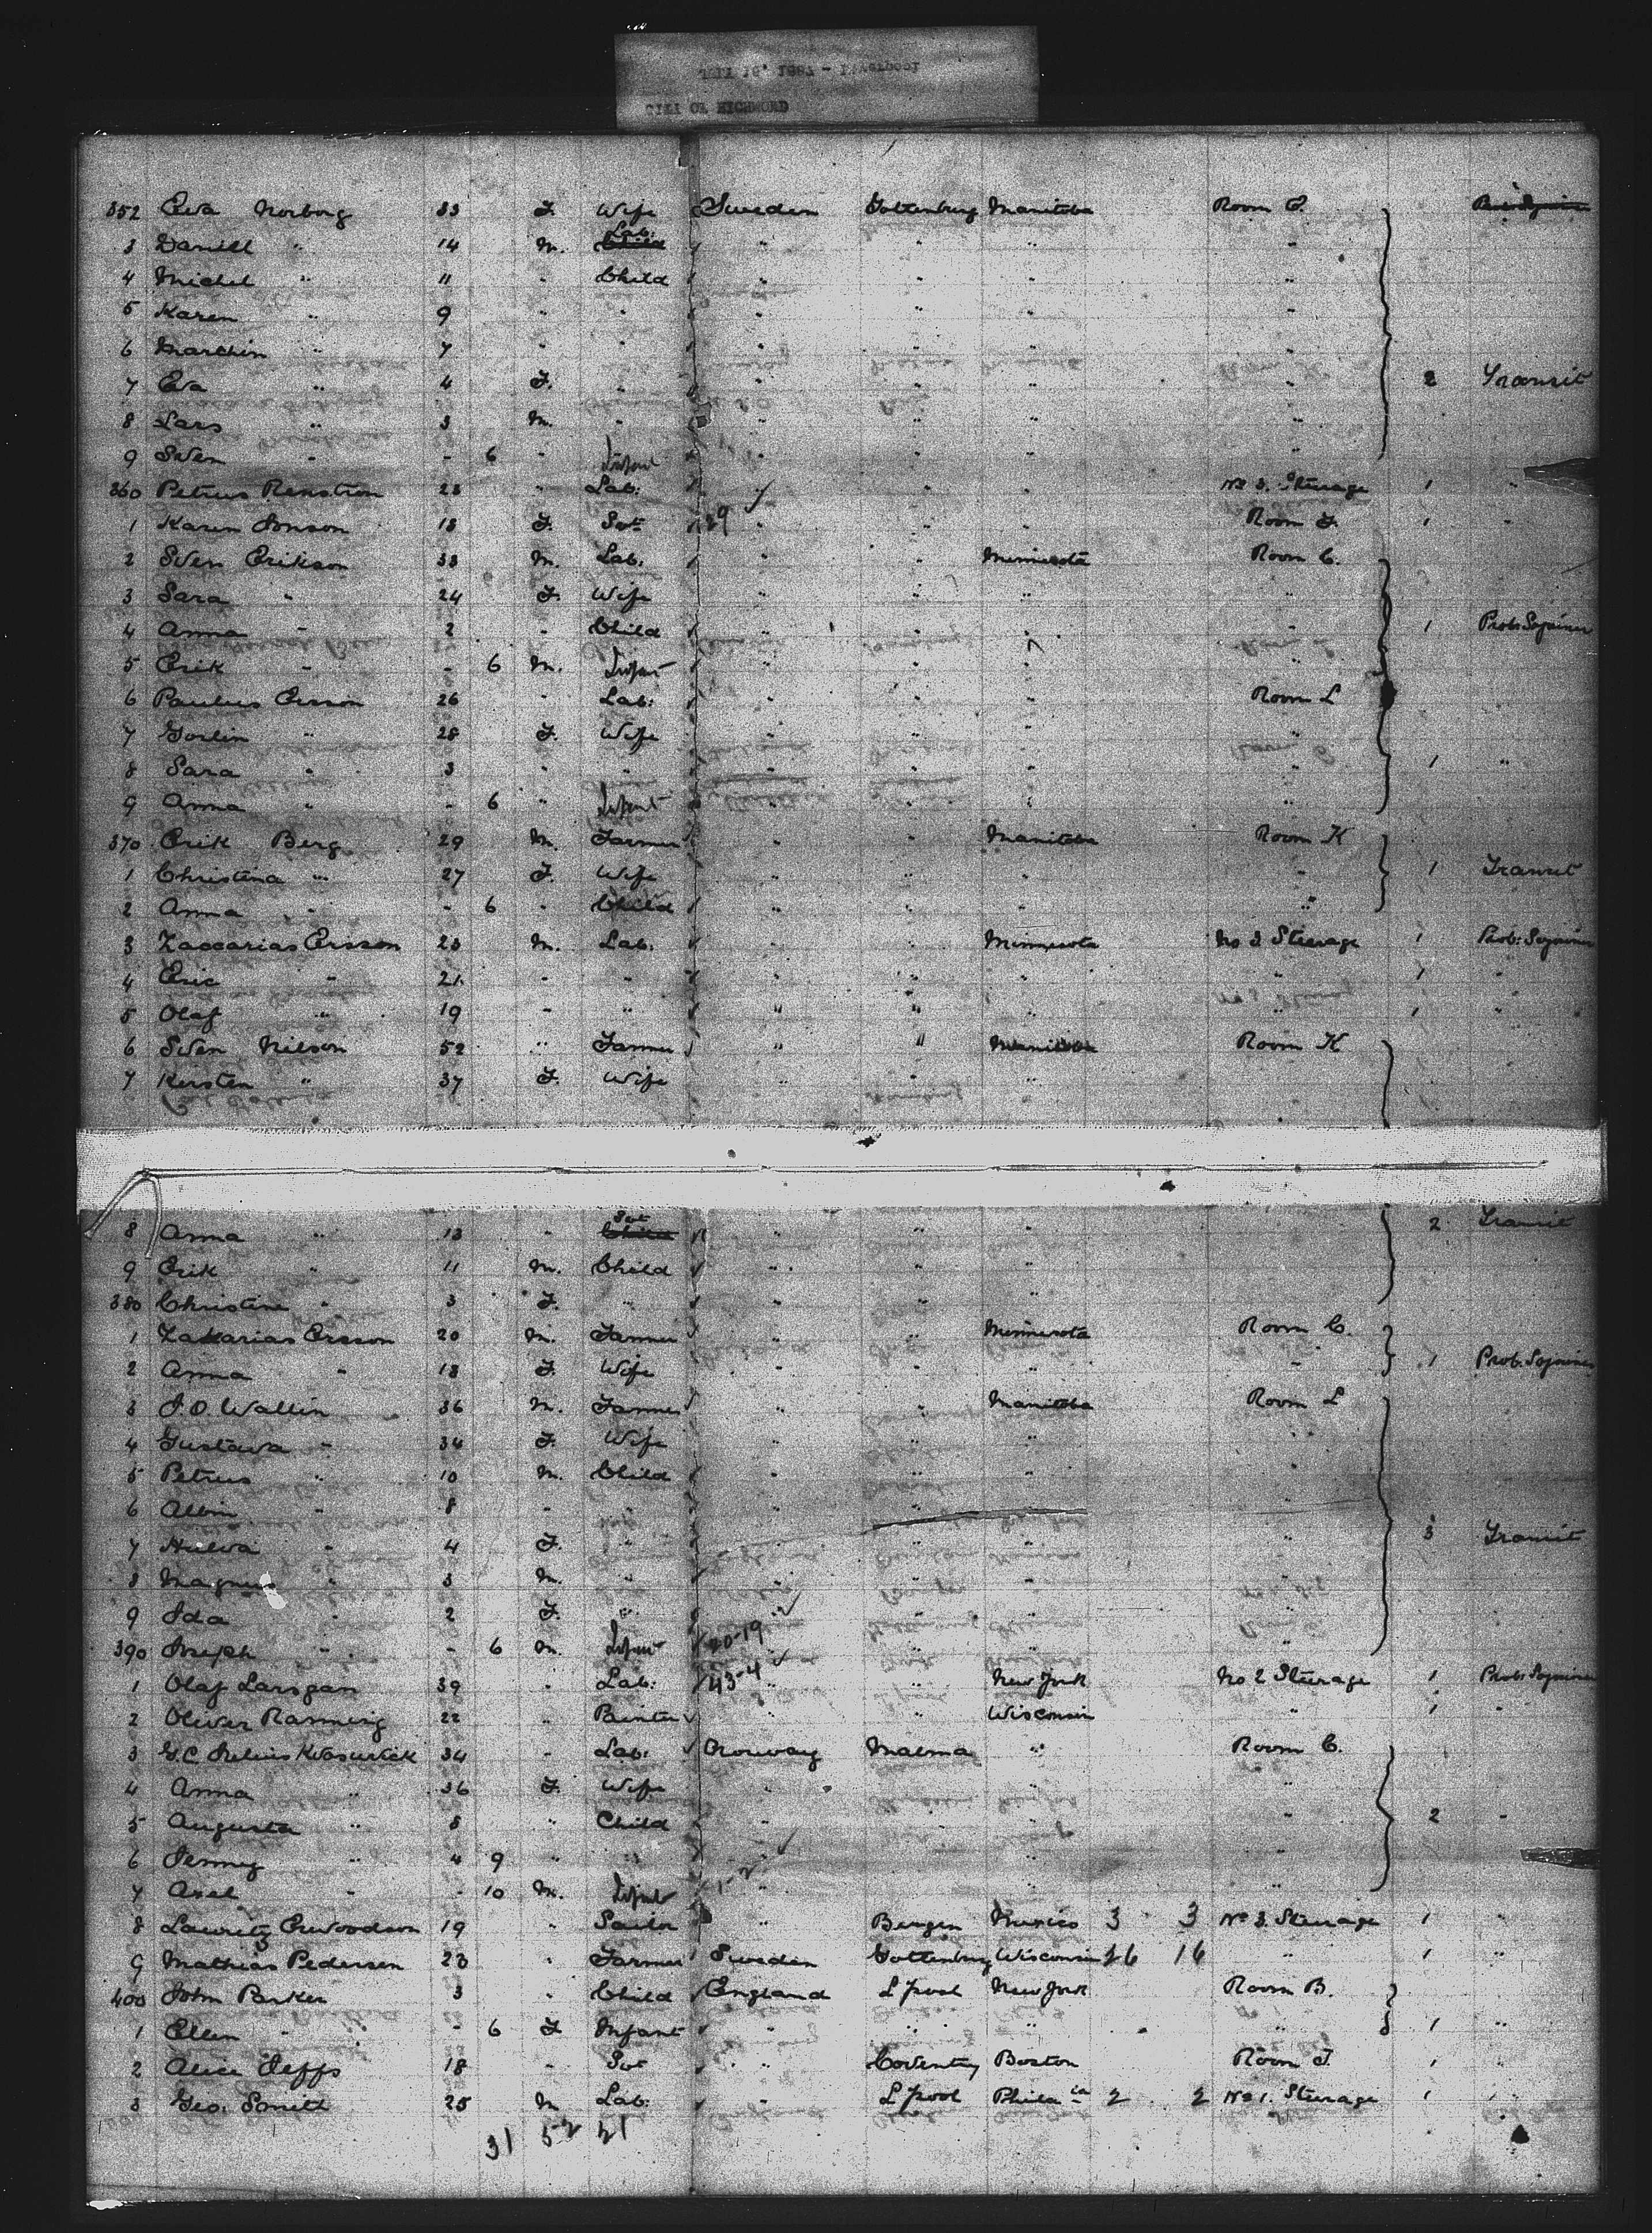 CITY OF RICHMOND
352 Eva Norborg 33 F. Wife Sweden Gottenburg Manitoba Room
3 Daniel " 14 M. Lab: Child " " " "
4 Michel " 11 " Child " " " "
5 Karen " 9 " " " " " "
6 Marthin " 7 " " " " " "
7 Eva " 4 F. " " " " " 2 Transit
8 Lars " 3 M. " " " " "
9 Sven " - 6 " Infant " " " "
360 Petrus Renstrom 23 " Lab: " " " No 3. Steerage 1 "
1 Karen Jonson 18 F. Svt " " " Room F. 1 "
2 Sven Erikson 33 M. Lab: " " Minnesota Room C.
3 Sara " 24 F. Wife " " " "
4 Anna " 2 " Child " " " " 1 Prob: Sojourner
5 Erik " - 6 M. Infant " " " "
6 Paulus Ersson 26 " Lab: " " " Room L
7 Gorlin " 28 F. Wife " " " "
8 Sara " 3 " " " " " " 1 "
9 Anna " - 6 " Infant " " " "
370 Erik Berg 29 M. Farmer " " Manitoba Room K
1 Christina " 27 F. Wife " " " " 1 Transit
2 Anna " - 6 " Child " " " "
3 Zaccarias Ersson 23 M. Lab: " " Minnesota No 3 Steerage 1 Prob: Sojourner
4 Eric " 21 " " " " " " 1 "
5 Olaf " 19 " " " " " " 1 "
6 Sven Nilson 52 " Farmer " " Manitoba Room K
7 Kersten " 37 F. Wife " " "
8 Anna " 13 " Svt Child " " " 2 Transit
9 Erik " 11 M. Child " " "
380 Christine " 3 F. " " " "
1 Zakarias Ersson 20 M. Farmer " " Minnesota Room C.
2 Anna " 18 F. Wife " " " " 1 Prob. Sojourner
3 J.O. Wallin 36 M. Farmer " " Manitoba Room L
4 Gustava " 34 F. Wife " " " "
5 Petrus " 10 M. Child " " " "
6 Albin " 8 " " " " " "
7 Hulva " 4 F. " " " " " 3 Transit
8 Magnus " 3 M. " " " " "
9 Ida " 2 F. " " " " "
390 Joseph " - 6 M. Infant 20-19 " " " "
1 Olaf Larsgan 39 " Lab: 43-4 " " New York No 2 Steerage 1 Prob: Sojourner
2 Oliver Ranmerig 22 " Painter " " Wisconsin " 1 "
3 G.C. Julius 34 " Lab: Norway Malma " Room C.
4 Anna " 36 F. Wife " " " "
5 Augusta " 8 " Child " " " " 2 "
6 Jenny " 4 9 " " " " " "
7 Axel " - 10 M. Infant " " " "
8 Lauritz 19 " Sailor " Bergen Mexico 3 3 No 3. Steerage 1 "
9 Mathias Pedersen 23 " Farmer Sweden Gottenburg Wisconsin 16 16 " 1 "
400 John Parker 3 " Child England L'pool New York Room B.
1 Ellen " - 6 F Infant " " " " 1 "
2 Alice Jepps 18 " Svt " Coventry Boston Room F. 1 "
3 Geo. Smith 25 M Lab: " L'pool Phila 2 2 No 1. Steerage 1 "
31 52 21